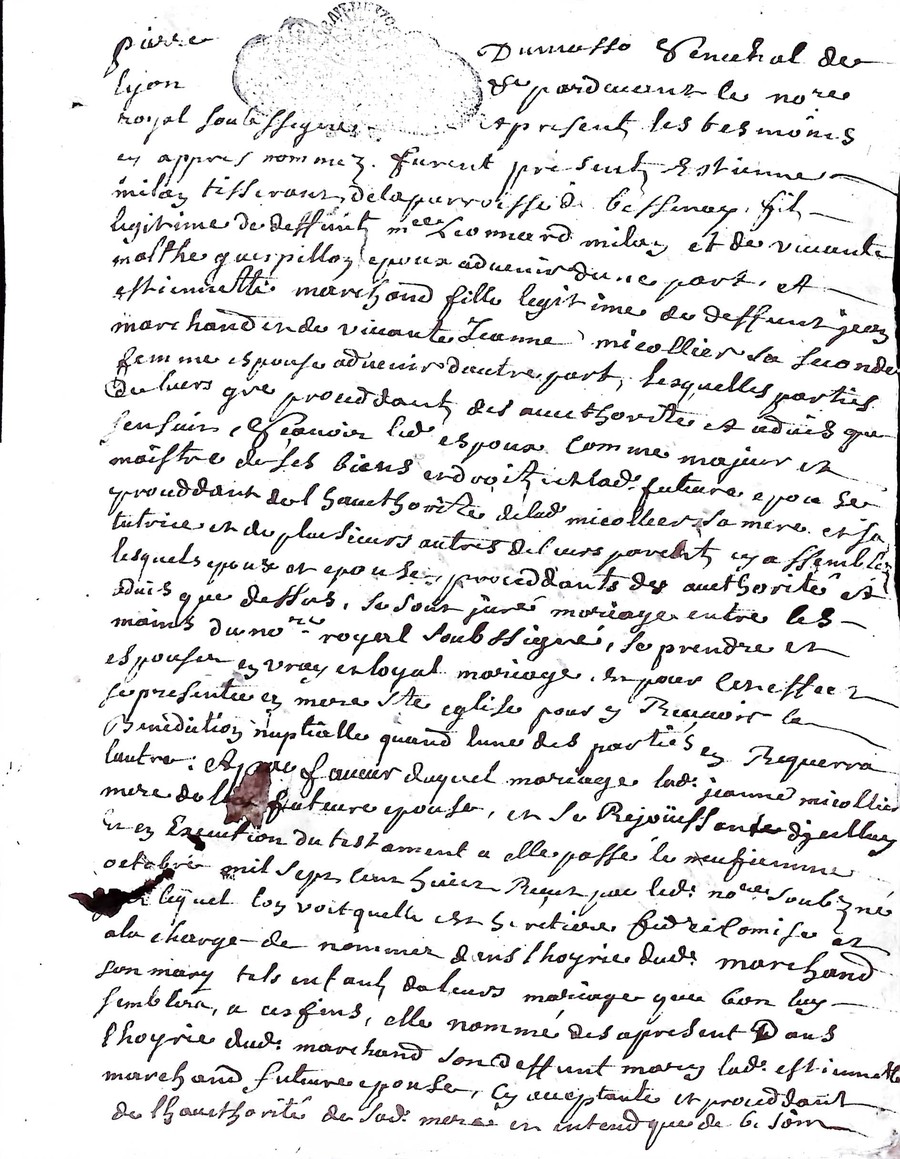 pierre Dumasso Senechal de
lyon et pardevant le no.re
royal soubssigne et presentz les tesmoins
cy appres nommez. furent presentz Estienne
milan tisserant de la parroisse de bessenay, filz
legitime de deffunt m.e Leonnard milan et de vivante
malthe guerpillon epoux advenir dune part, et
estiennette marchand fille legitime de deffunt jean
marchand et de vivante Jeanne micollier sa seconde
femme espouse advenir dautre part, lesquelles parties
de leurs gre proceddant des aucthorité et advis que
sensuit, Scavoir led. espoux comme majeur et
maistre de ses biens et droitz et lad. future epouse
proceddant de lhaucthorité de lad. micollier sa mere et sa
tutrice et de plusieurs autres de leurs parentz cy assemblez
lesquels epoux et epouse, proceddants des aucthorité et
advis que dessus, se sont juré mariage entre les
mains du no.re royal soubssigné, se prendre et
espouser en vray et loyal mariage, et pour cet effect
se presenter en nre mere s.te eglise pour y Recevoir la
Benediction nuptialle quand lune des parties en Requerra
lautre. et faveur duquel mariage lad. jeanne micollier
mere de la future epouse, et se Rejouissante dyeelluy
et en Execution du testament a elle passé le neufiemme
octobre mil sept cent huict Receu par led. no.re soubzné
lequel lon voit quelle est heritiere fideicomise et
a la charge de nommer dens lhoyrie dud. marchand
son mary tels enfantz de leurs mariage que bon luy
semblera, a ces fins, elle nommé des apresent Dans
lhoyrie dud. marchand son deffunt mary lad. estiennette
marchand future epouse, cy acceptante et proceddant
de lhaucthorité de sad. mere et entend que de